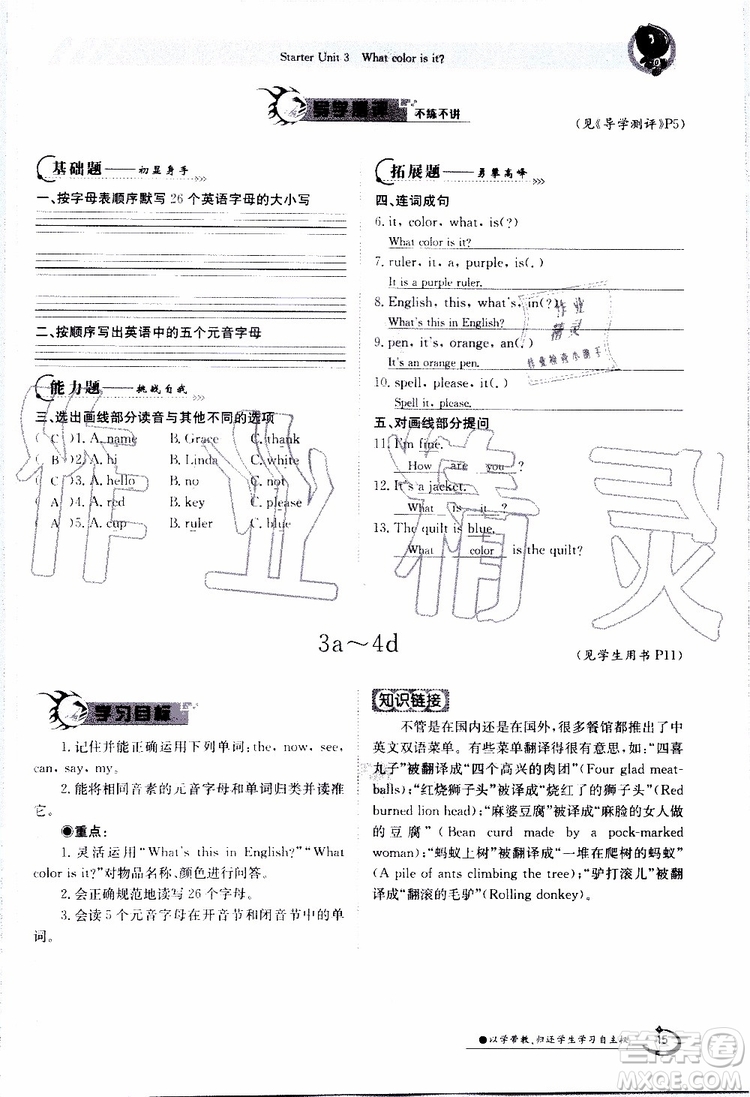 Starter Unit 3 What color is it?
导学测评 不练不讲
(见《导学测评》P5)
基础题——初显身手
一、按字母表顺序默写 26 个英语字母的大小写
二、按顺序写出英语中的五个元音字母
能力题——挑战自我
三、选出画线部分读音与其他不同的选项
( C )1. A. name B. Grace C. thank
( B )2. A. hi B. Linda C. white
( C )3. A. hello B. no C. not
( A )4. A. red B. key C. please
( A )5. A. cup B. ruler C. blue
拓展题——勇攀高峰
四、连词成句
6. it, color, what, is(?)
What color is it?
7. ruler, it, a, purple, is(. )
It is a purple ruler.
8. English, this, what's, in(?)
What's this in English?
9. pen, it's, an, orange(. )
It's an orange pen.
10. spell, please, it(. )
Spell it, please.
五、对画线部分提问
11. I'm fine.
How are you ?
12. It's a jacket.
What is it ?
13. The quilt is blue.
What color is the quilt?
作业
精灵
作业检查小助手
作业精灵
3a～4d
(见学生用书 P11)
学习目标
1. 记住并能正确运用下列单词: the, now, see,
can, say, my。
2. 能将相同音素的元音字母和单词归类并读准
它。
●重点:
1. 灵活运用“What's this in English?”“What
color is it?”对物品名称、颜色进行问答。
2. 会正确规范地读写 26 个字母。
3. 会读 5 个元音字母在开音节和闭音节中的单
词。
知识链接
不管是在国内还是在国外，很多餐馆都用了中
英文双语菜单。有些菜单翻译得很有意思，如:“四喜
丸子”被翻译成“四个高兴的肉团”(Four glad meat-
balls);“红烧狮子头”被译成“烧红了的狮子头”(Red
burned lion head);“麻婆豆腐”被译成“麻脸的女人做
的豆腐”(Bean curd made by a pock-marked
woman);“蚂蚁上树”被翻译成“一堆在爬树的蚂蚁”
(A pile of ants climbing the tree);“驴打滚儿”被翻
译成“翻滚的毛驴”(Rolling donkey)。
●以学带教,归还学生学习自主权
15
答案圈
MXQE.COM